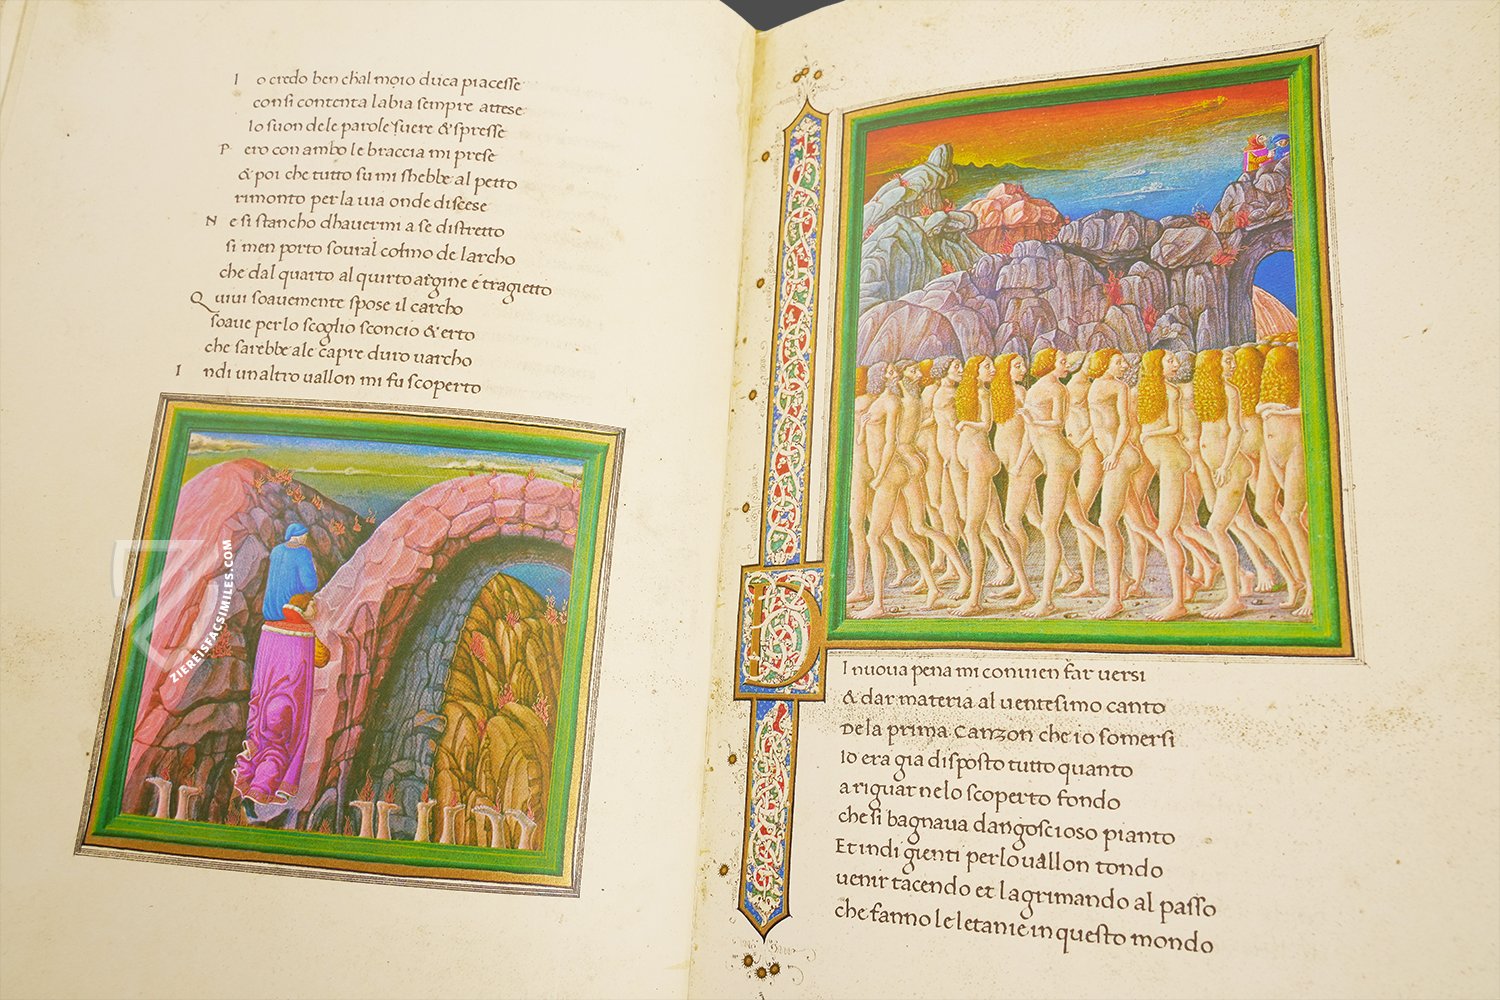 I o credo ben chal moio duca piacesse
con si contenta labia sempre attese
lo suon dele parole fuere & spresse
P ero con ambo le braccia mi prese
& poi che tutto su mi shebbe al petto
rimonto per la via onde discese
N e si stancho dhauermi a se distretto
si men porto soural colmo de larcho
che dal quarto al quinto argine e tragietto
Q uiui soauemente spose il carcho
soaue per lo scoglio sconcio & erto
che sarebbe ale capre duro uarcho
I ndi un altro uallon mi fu scoperto
ZIEREISFACSIMILES.COM
D I nuoua pena mi conuien far uersi
& dar materia al uentesimo canto
Dela prima Canzon che io somersi
Io era gia disposto tutto quanto
a riguar nelo scoperto fondo
che si bagnaua dangoscioso pianto
Et indi gienti per lo uallon tondo
uenir tacendo et lagrimando al passo
che fanno le letanie in questo mondo